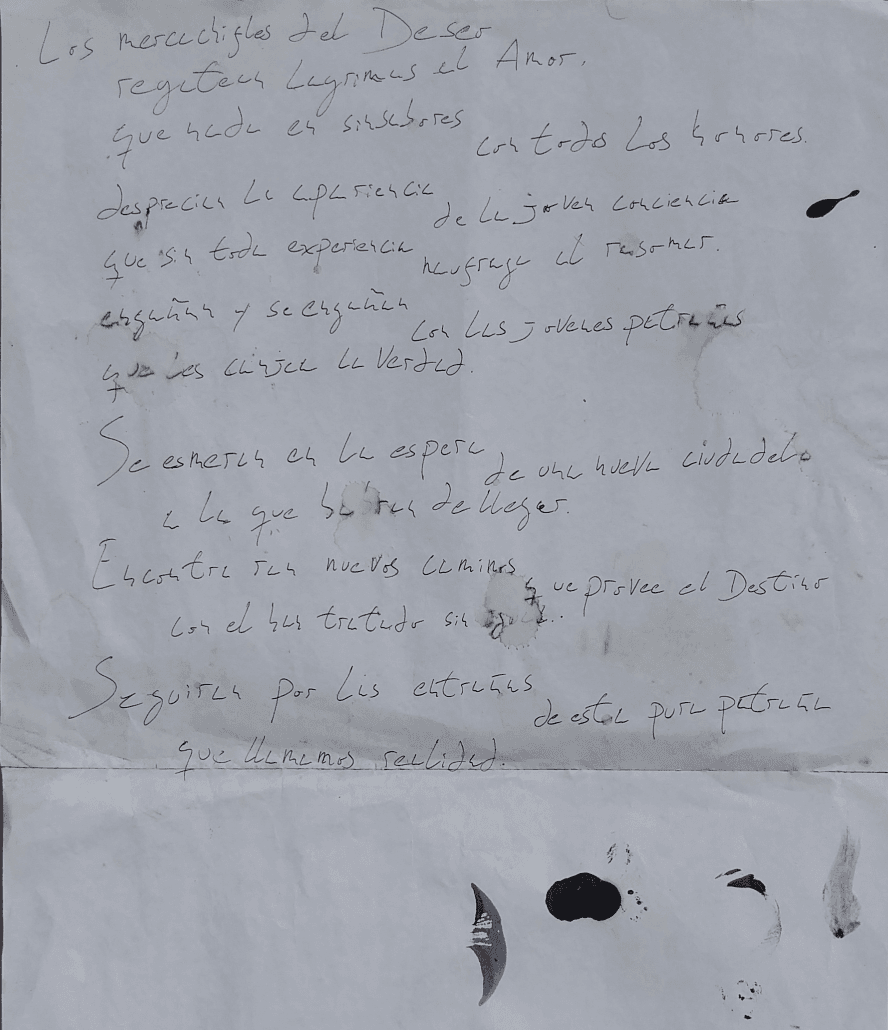 Los mercachifles del Deseo
regatean Lagrimas al Amor.
que nada en sinsabores con todos los honores.
desprecian la apariencia de la joven conciencia
que sin toda experiencia naufraga al rasomar.
engañan y se engañan con las jovenes patrañas
que les canjea la Verdad.
Se esmeran en la espera de una nueva ciudadela
a la que habran de llegar.
Encontraran nuevos caminos que provee el Destino
con el han tratado sin
Seguiran por las entrañas de esta pura patraña
que llamamos realidad.